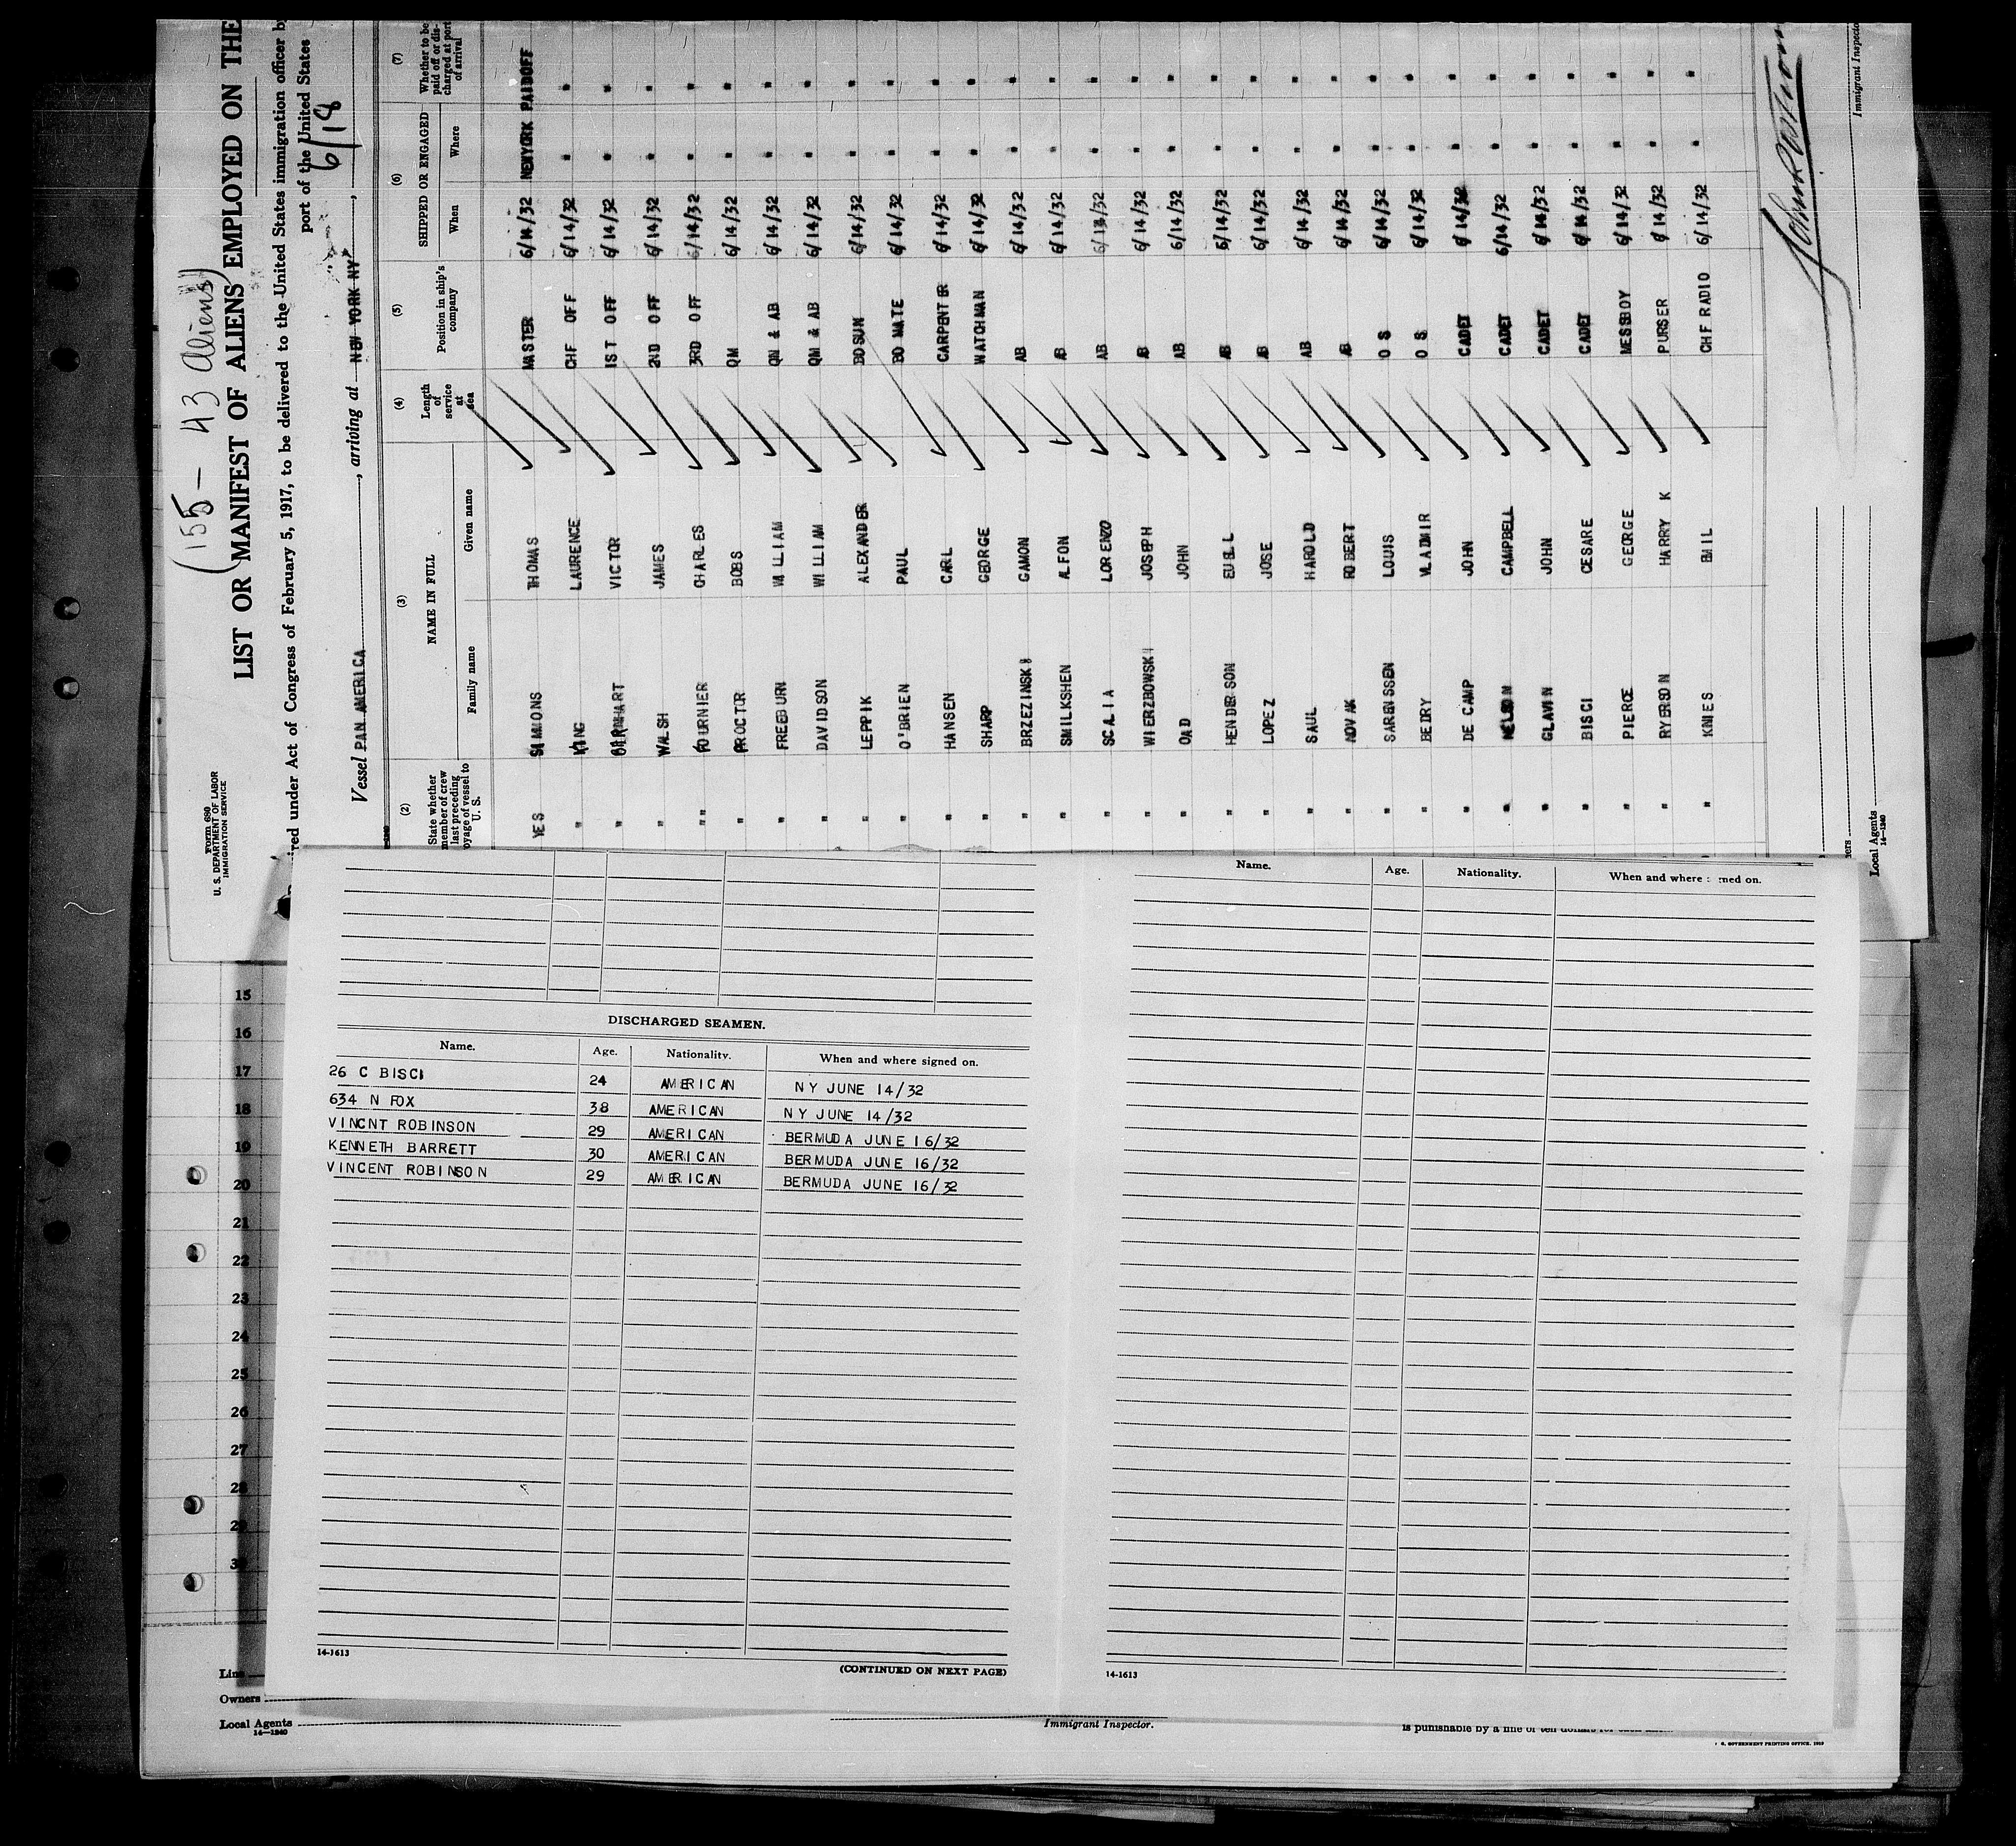 (155 - 43 Aliens)
LIST OR MANIFEST OF ALIENS EMPLOYED ON THE
Form 680
U. S. DEPARTMENT OF LABOR
IMMIGRATION SERVICE
red under Act of Congress of February 5, 1917, to be delivered to the United States immigration officer by
port of the United States
Vessel PAN AMERICA, arriving at NEW YORK NY, 6/18
(2) (3) (4) (5) (6) (7)
State whether member of crew last preceding oyage of vessel to U. S.
NAME IN FULL
Family name Given name
Length of service at sea
Position in ship's company
SHIPPED OR ENGAGED
When Where
Whether to be paid off or discharged at port of arrival
YES SIMMONS THOMAS MASTER 6/14/32 NEWYORK PAIDOFF
" KING LAURENCE CHF OFF 6/14/32 " "
" VICTOR 1ST OFF 6/14/32 " "
" WALSH JAMES 2ND OFF 6/14/32 " "
"" FOURNIER CHARLES 3RD OFF 6/14/32 " "
" PROCTOR BOBS QM 6/14/32 " "
" FREEBURN WILLIAM QM & AB 6/14/32 " "
" DAVIDSON WILLIAM QM & AB 6/14/32 " "
" LEPPIK ALEXANDER BOSUN 6/14/32 " "
" O'BRIEN PAUL BO MATE 6/14/32 " "
" HANSEN CARL CARPENTER 6/14/32 " "
" SHARP GEORGE WATCHMAN 6/14/32 " "
" BRZEZINSKI GAMON AB 6/14/32 " "
" SMILKSHEN ALFON AB 6/14/32 " "
" SCALIA LORENZO AB 6/14/32 " "
" WIERZBOWSKI JOSEPH AB 6/14/32 " "
" OAD JOHN AB 6/14/32 " "
" HENDERSON EUELL AB 6/14/32 " "
" LOPEZ JOSE AB 6/14/32 " "
" SAUL HAROLD AB 6/14/32 " "
" NOVAK ROBERT AB 6/14/32 " "
" SARENSSEN LOUIS O S 6/14/32 " "
" BEDRY VLADMIR O S 6/14/32 " "
" DE CAMP JOHN CADET 6/14/32 " "
" NELSON CAMPBELL CADET 6/14/32 " "
" GLAVIN JOHN CADET 6/14/32 " "
" BISCI CESARE CADET 6/14/32 " "
" PIERCE GEORGE MESSBOY 6/14/32 " "
" RYERSON HARRY K PURSER 6/14/32 " "
" KNIES EMIL CHF RADIO 6/14/32 " "
Immigrant Inspector
Local Agents
14—1240
Name. Age. Nationality. When and where signed on.
DISCHARGED SEAMEN.
Name. Age. Nationality. When and where signed on.
26 C BISCI 24 AMERICAN NY JUNE 14/32
634 N FOX 38 AMERICAN NY JUNE 14/32
VINCNT ROBINSON 29 AMERICAN BERMUDA JUNE 16/32
KENNETH BARRETT 30 AMERICAN BERMUDA JUNE 16/32
VINCENT ROBINSON 29 AMERICAN BERMUDA JUNE 16/32
14-1613
(CONTINUED ON NEXT PAGE)
14-1613
15
16
17
18
19
20
21
22
23
24
25
26
27
28
29
30
Line
Owners
Local Agents
14—1240
Immigrant Inspector.
is punishable by a fine of ten dollars for each
GOVERNMENT PRINTING OFFICE